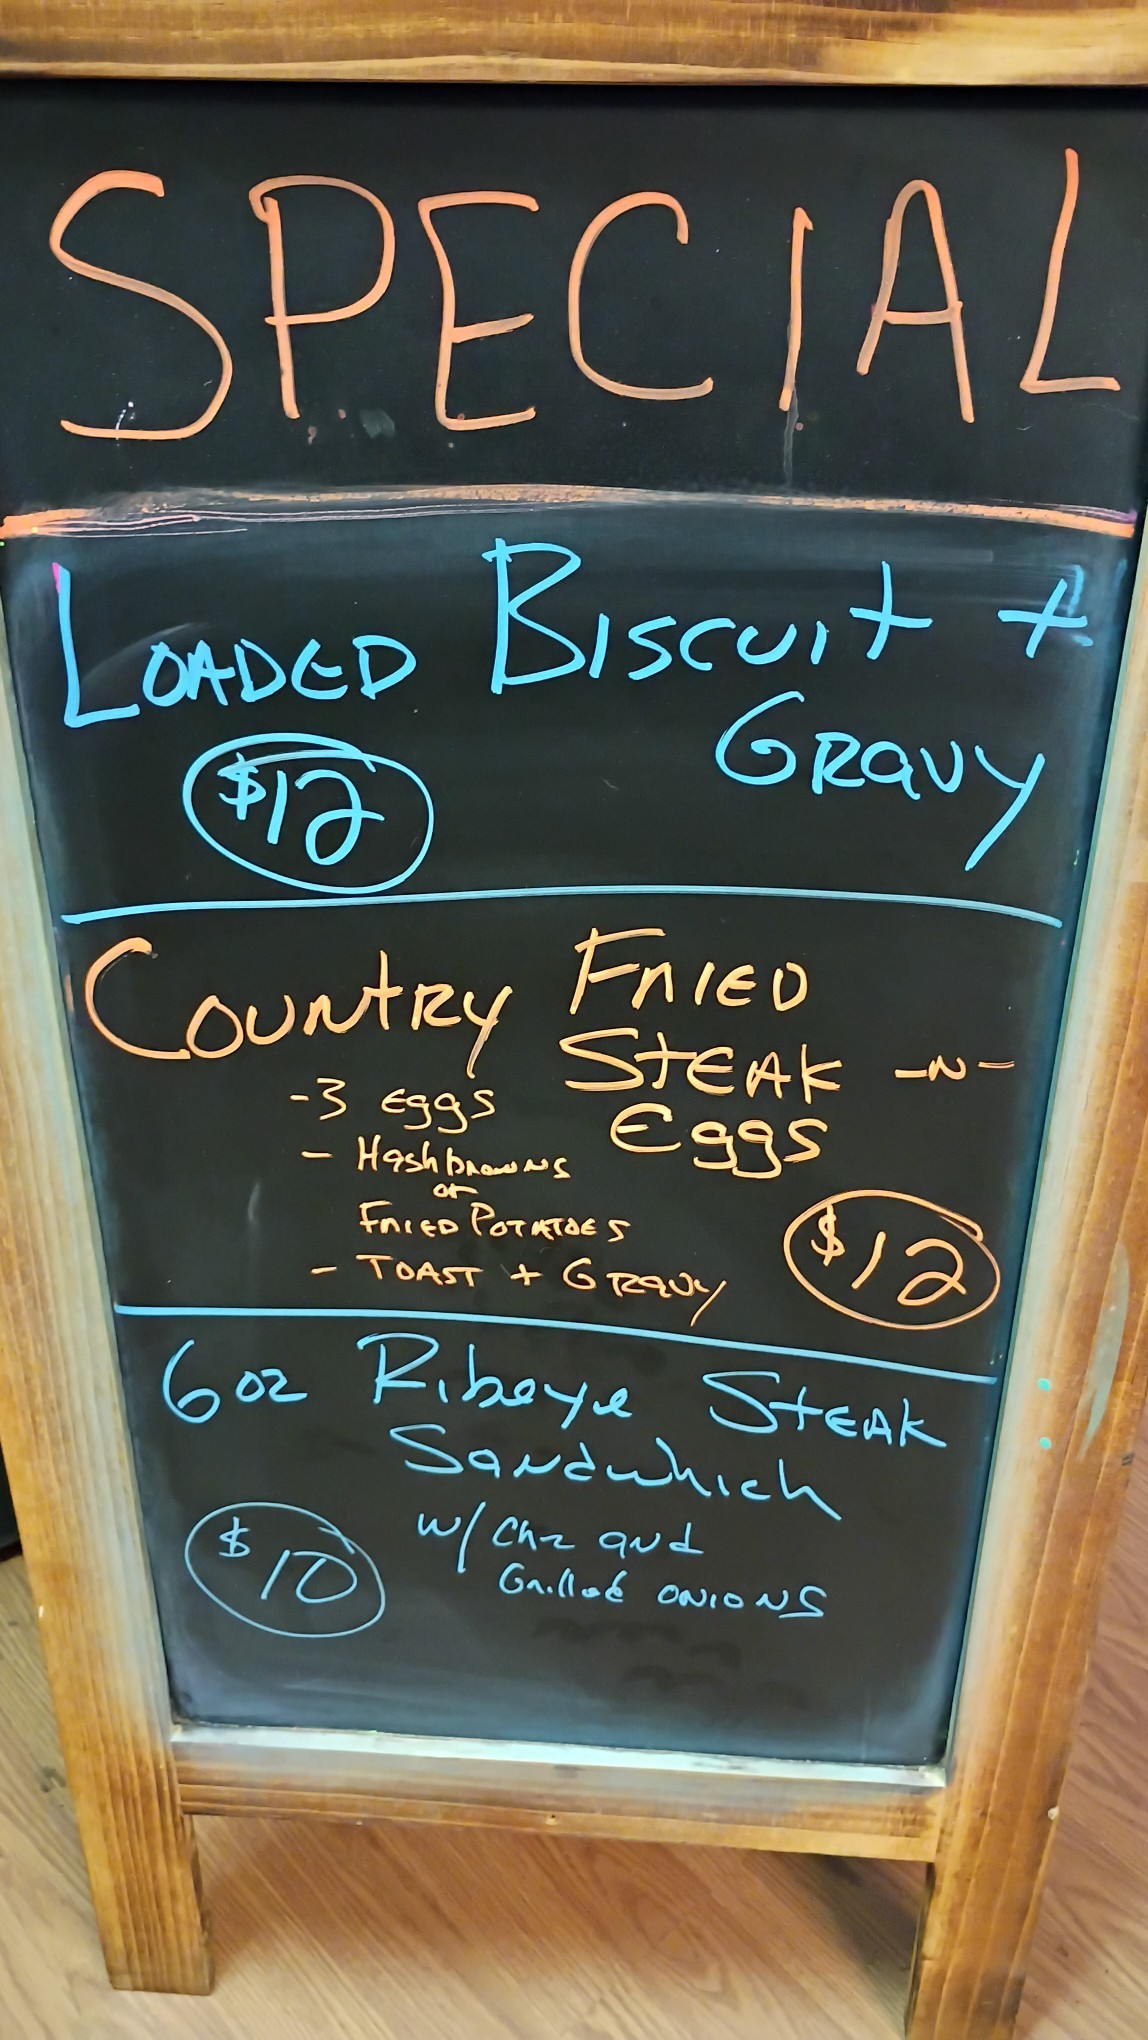 SPECIAL
LOADED BISCUIT +
GRavy
$12
COUNTRY FRIED
STEAK -N-
Eggs
-3 Eggs
- Hashbrowns
or
FRIED POTATOES
- TOAST + GRavy
$12
6oz Ribeye STEAK
Sandwhich
w/ chz and
Grilled ONIONS
$10